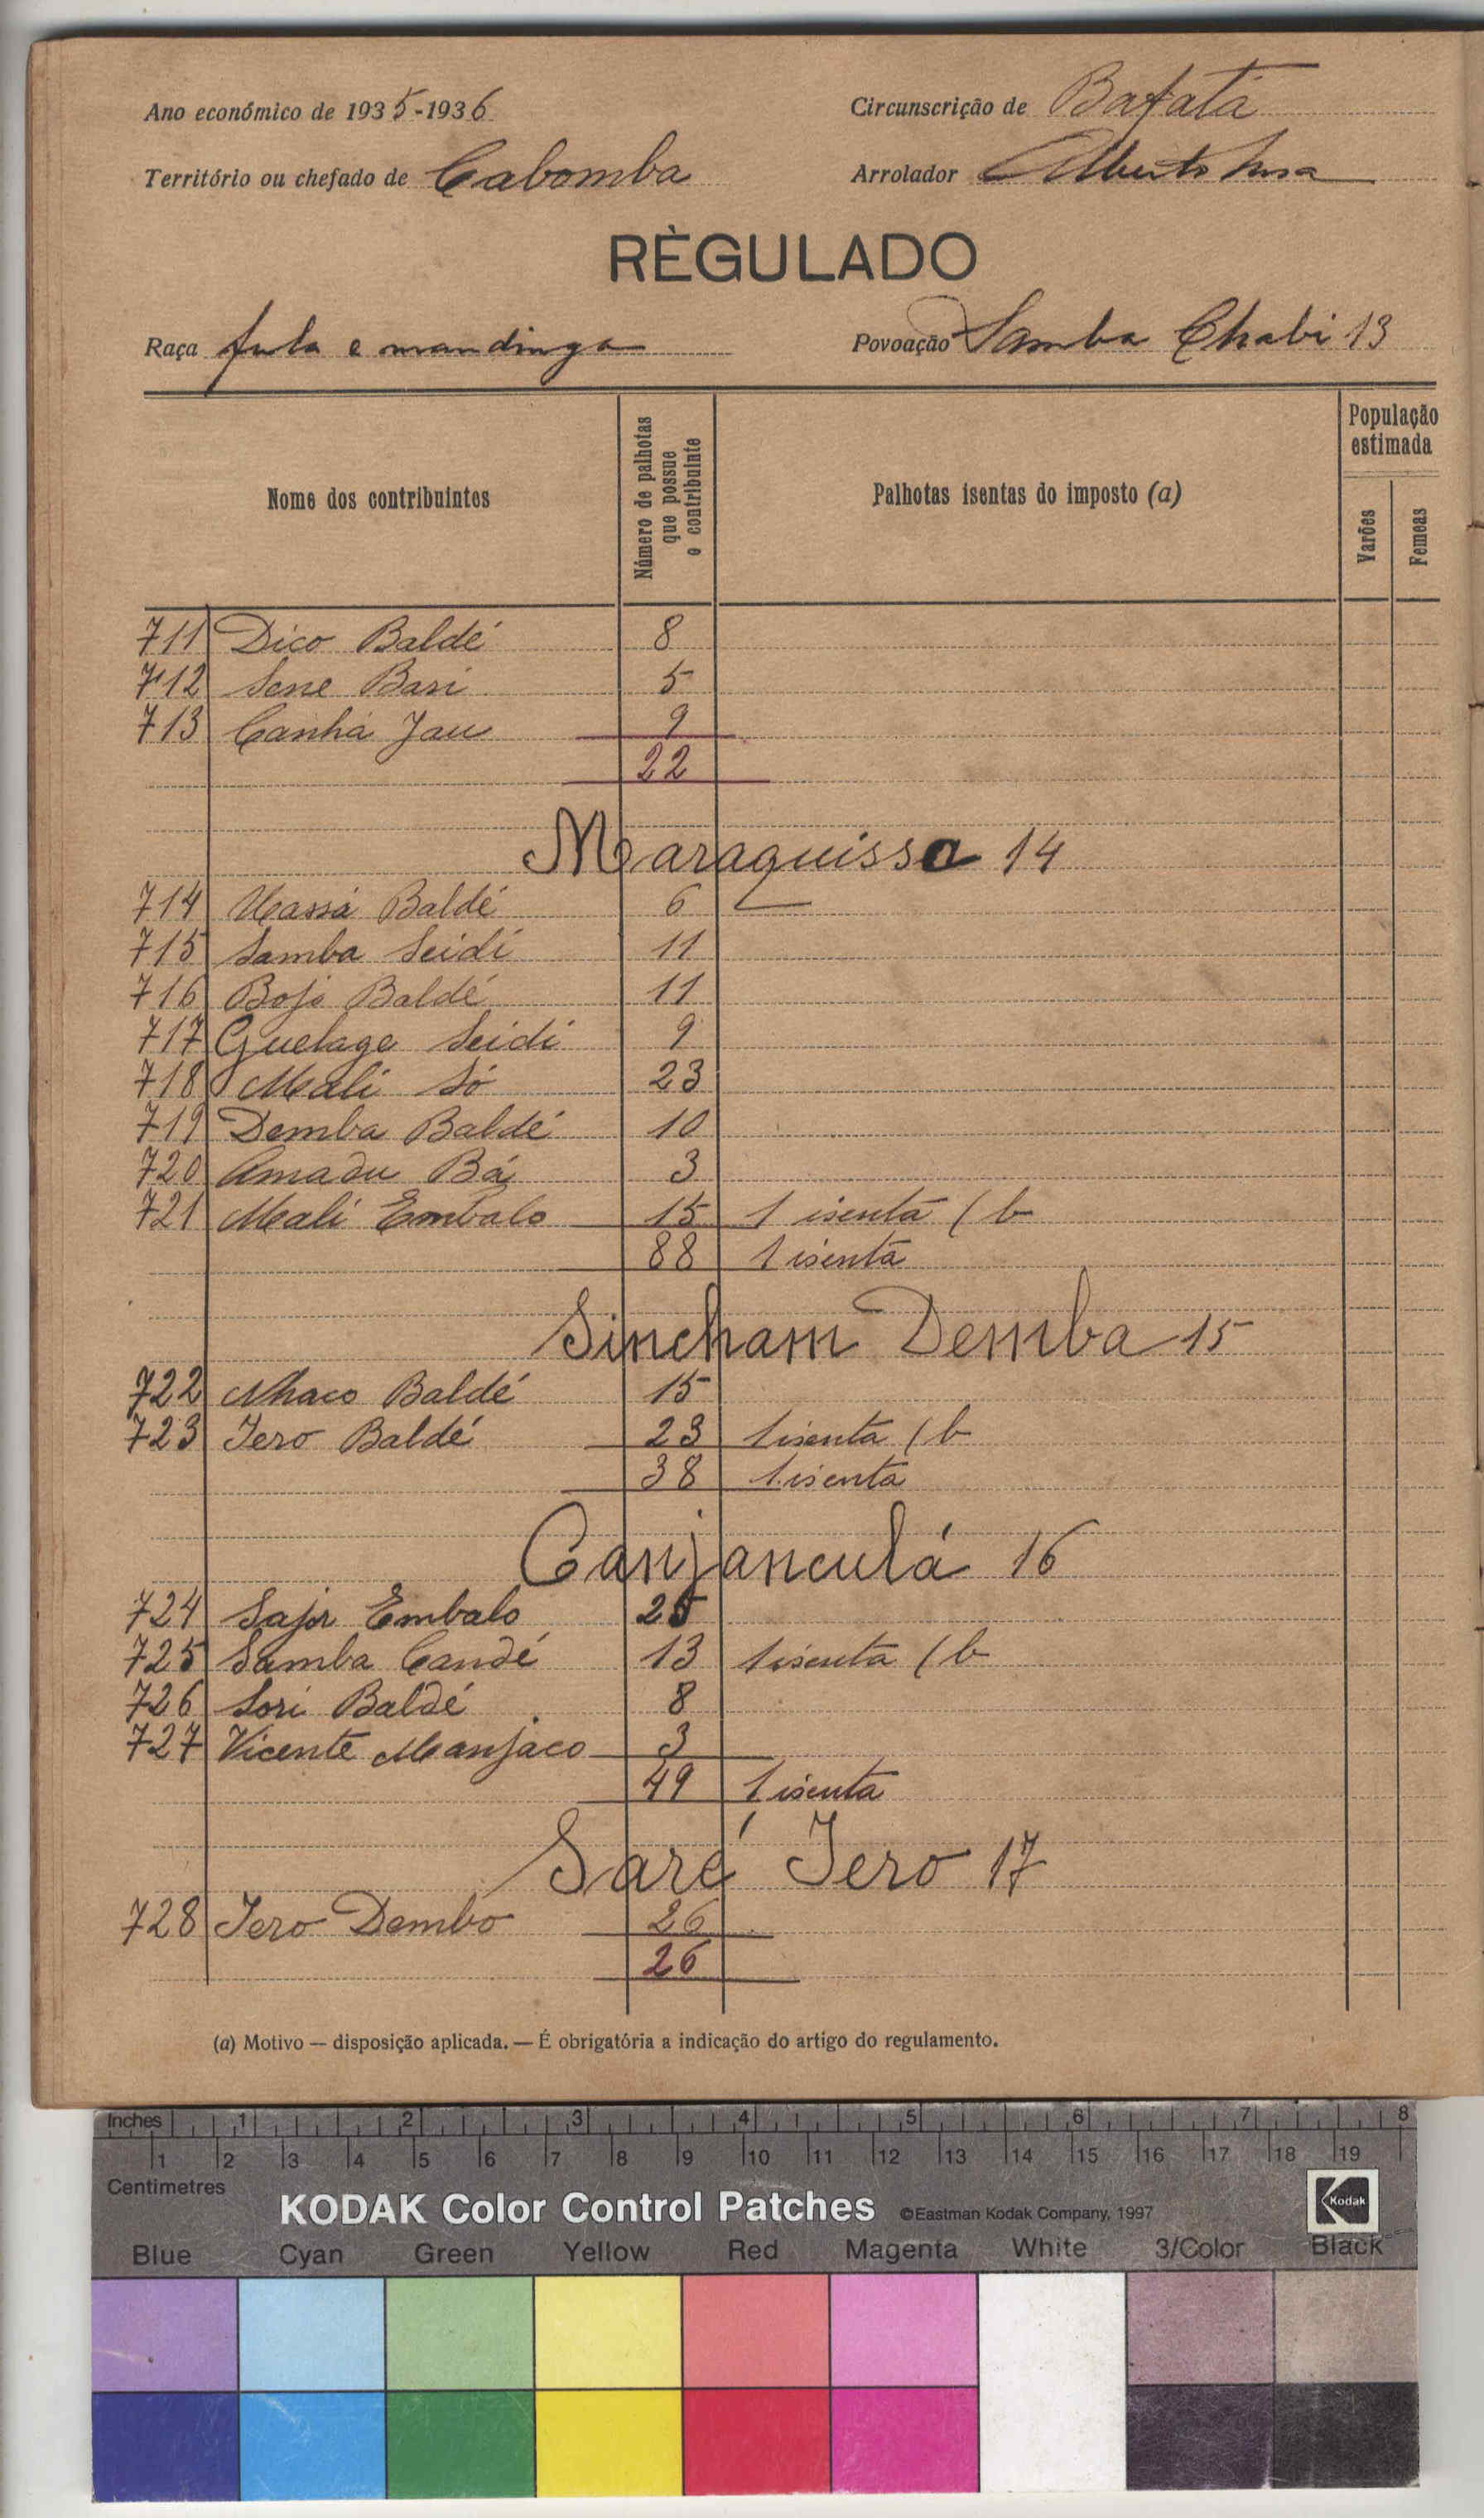 Ano económico de 1935-1936 Circunscrição de Bafatá
Território ou chefado de Cabomba Arrolador Alberto
RÈGULADO
Raça fula e mandinga Povoação Samba Chabi 13
Nome dos contribuintes Número de palhotas que possue o contribuinte Palhotas isentas do imposto (a) População estimada Varões Femeas
711 Dico Baldé 8
712 Sene Bari 5
713 Canhá Jau 9
22
Maraquissa 14
714 Uassá Baldé 6
715 Samba Seidi 11
716 Bojo Baldé 11
717 Guelage Seidi 9
718 Mali Só 23
719 Demba Baldé 10
720 Amadu Bá 3
721 Mali Embalo 15 1 isenta / b
88 1 isenta
Sincham Demba 15
722 Nhaco Baldé 15
723 Iero Baldé 23 1 isenta / b
38 1 isenta
Canjanculá 16
724 Sajo Embalo 25
725 Samba Candé 13 1 isenta / b
726 Sori Baldé 8
727 Vicente Manjaco 3
49 1 isenta
Saré Iero 17
728 Iero Dembo 26
26
(a) Motivo — disposição aplicada. — É obrigatória a indicação do artigo do regulamento.
Inches 1 2 3 4 5 6 7 8
1 2 3 4 5 6 7 8 9 10 11 12 13 14 15 16 17 18 19
Centimetres
KODAK Color Control Patches ©Eastman Kodak Company, 1997 Kodak
Blue Cyan Green Yellow Red Magenta White 3/Color Black